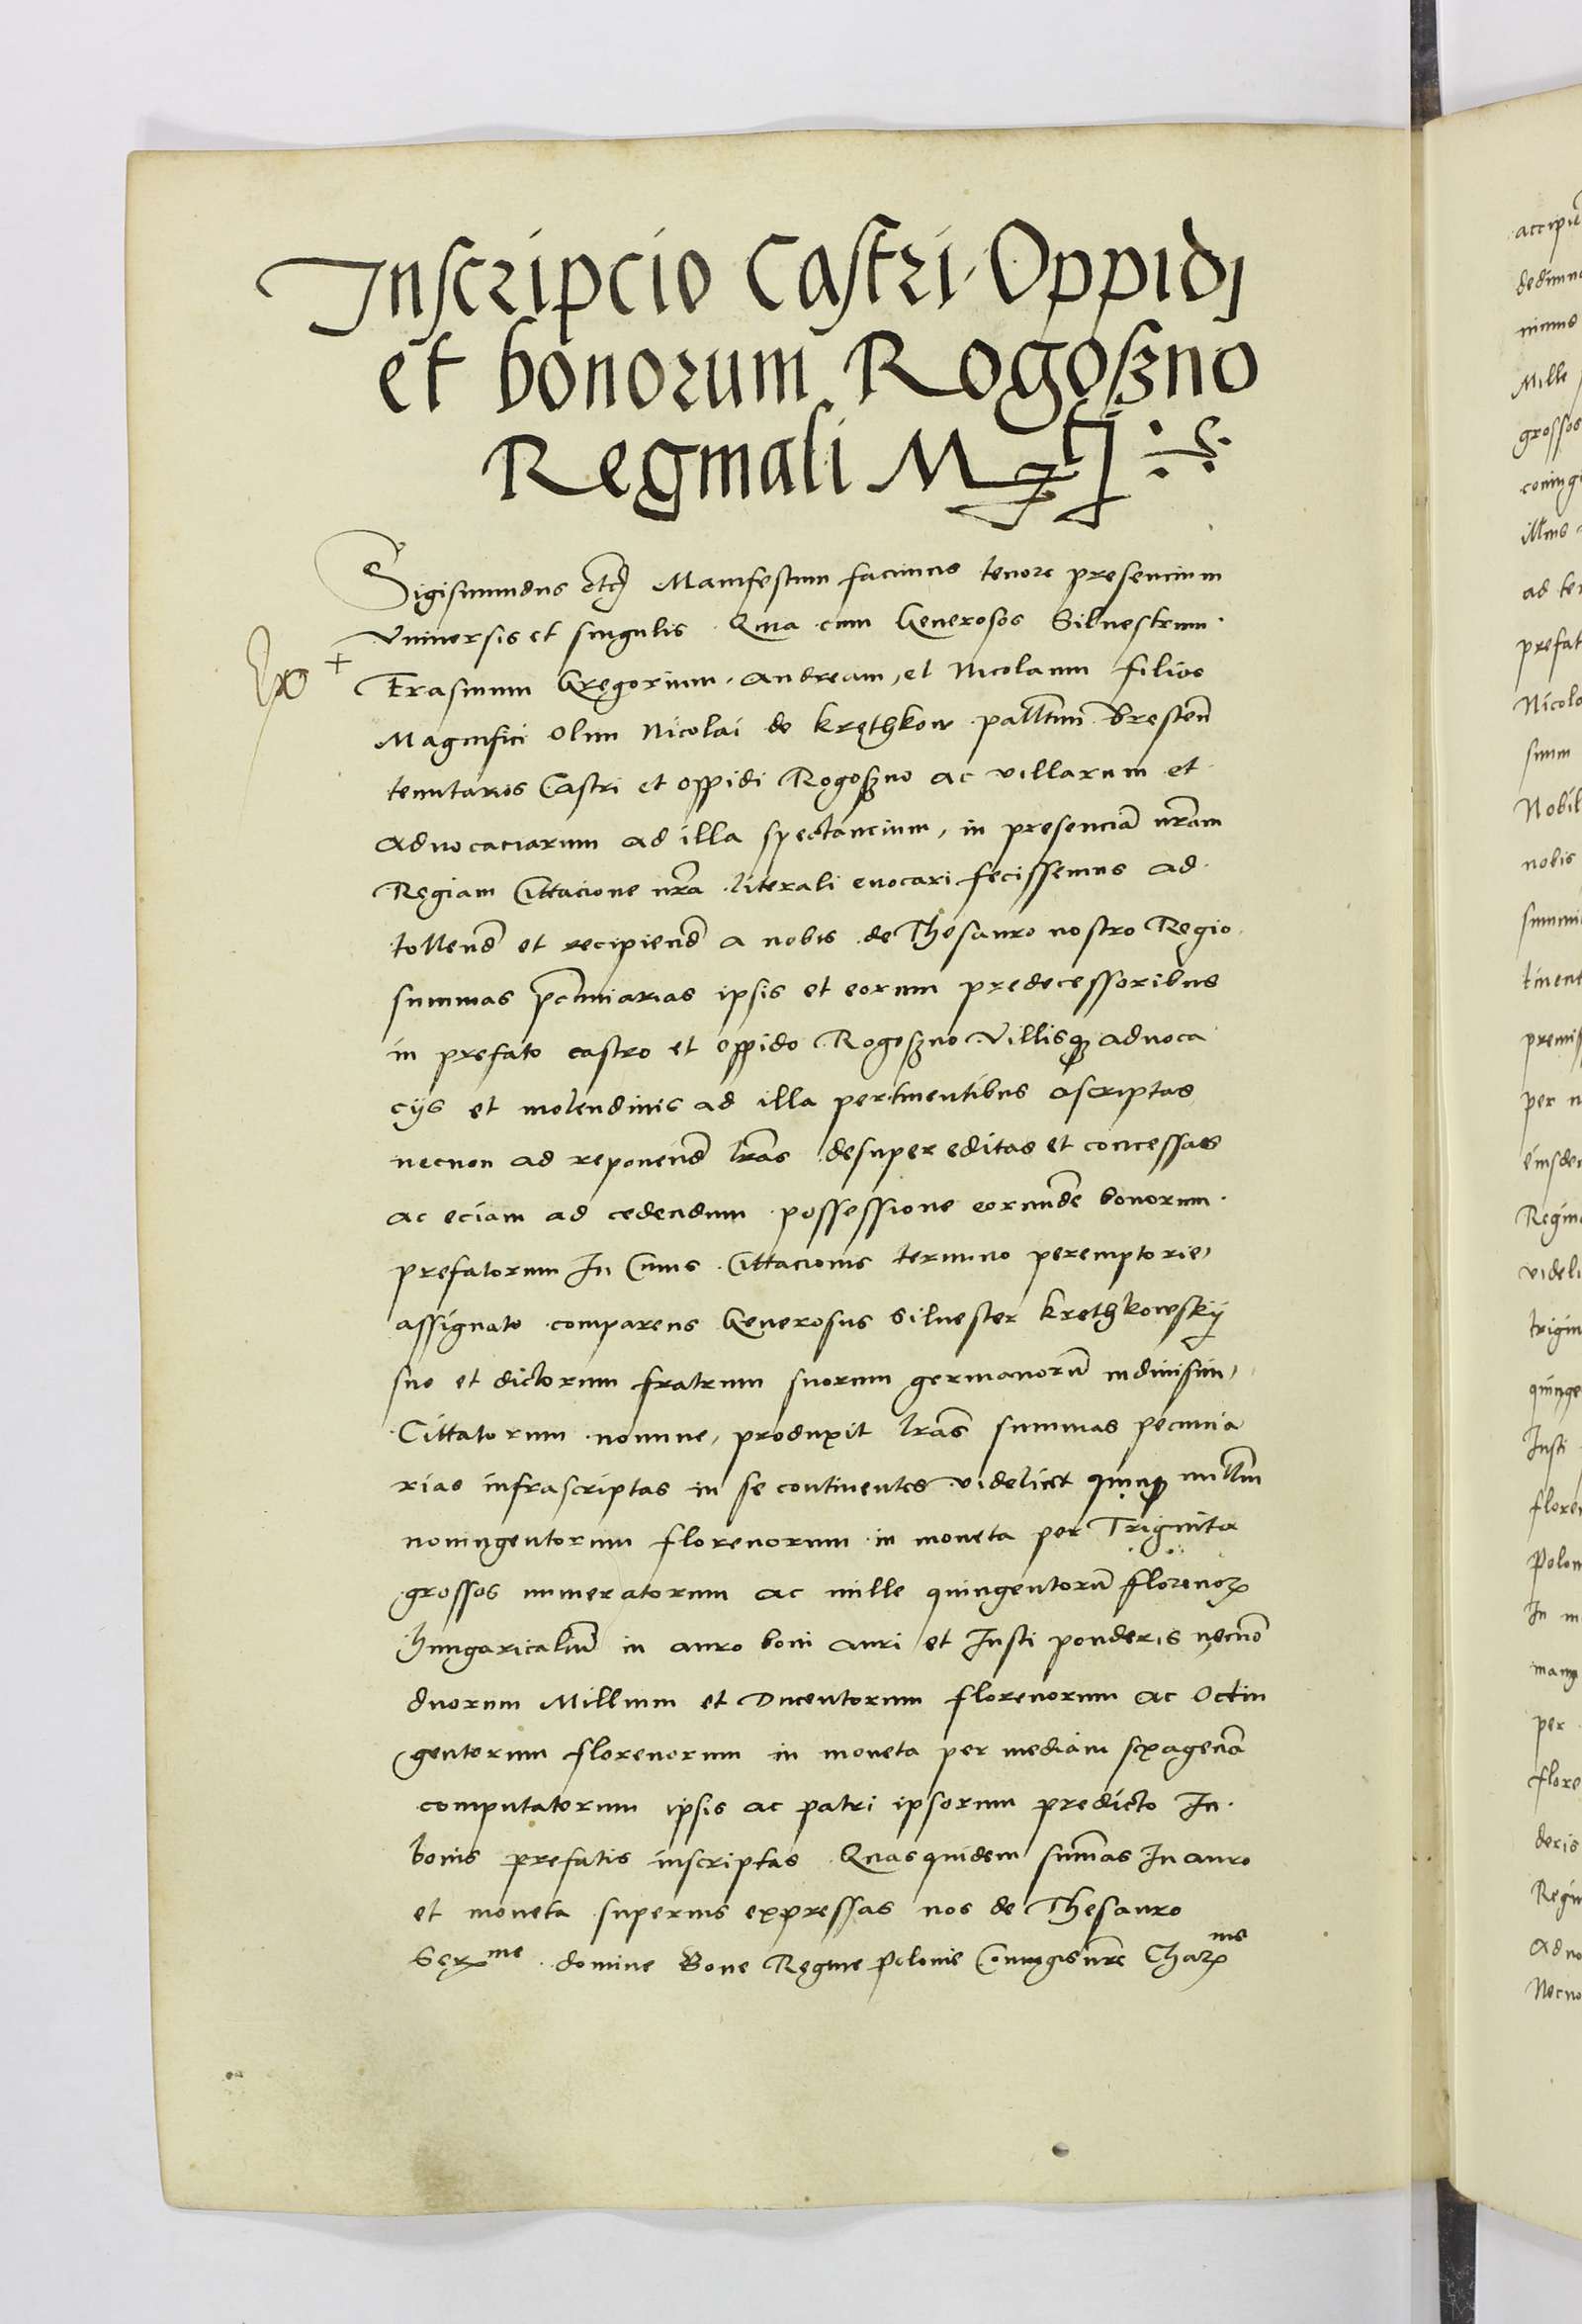 Inscripcio Castri Oppidj
et bonorum Rogoszno
Reginali M<sup>tj</sup>
Sigismundus etc Manifestum facimus tenore presencium
Vniuersis et singulis Quia cum Generosos Siluestrum
Erasmum Gregorium, Andream, et Nicolaum filios
Magnifici olim Nicolai de Krethkow pallatini Bresten
tenutarios Castri et oppidi Rogoszno ac villarum et
aduocaciarum ad illa spectancium, in presenciam nram
Regiam Cittacione nra literali euocari fecissemus ad
tollend et recipiend a nobis de Thesauro nostro Regio
summas pecuniarias ipsis et eorum predecessoribus
in prefato castro et oppido Rogoszno Villisque aduoca
cijs et molendinis ad illa pertinentibus ascriptas
necnon ad reponend lras desuper editas et concessas
ac eciam ad cedendum possessione eorunde bonorum
prefatorum In Cuius Cittacionis termino peremptorie
assignato comparens Generosus Siluester Krethkowskij
suo et dictorum fratrum suorum germanorum indiuisim
Cittatorum nomine, produxit lras summas pecunia
rias infrascriptas in se continentes videlicet quinque millium
noningentorum florenorum in moneta per Triginta
grossos numeratorum ac mille quingentorum florenorum
hungaricalium in auro boni auri et Iusti ponderis necno
duorum Millium et Ducentorum florenorum ac Octin
gentorum florenorum in moneta per mediam sexagena
computatorum ipsis ac patri ipsorum predicto In
bonis prefatis inscriptas Quasquidem summas In auro
et moneta superius expressas nos de Thesauro
Ser<sup>me</sup> domine Bone Regine Polonie Coniugis nre Char<sup>me</sup>